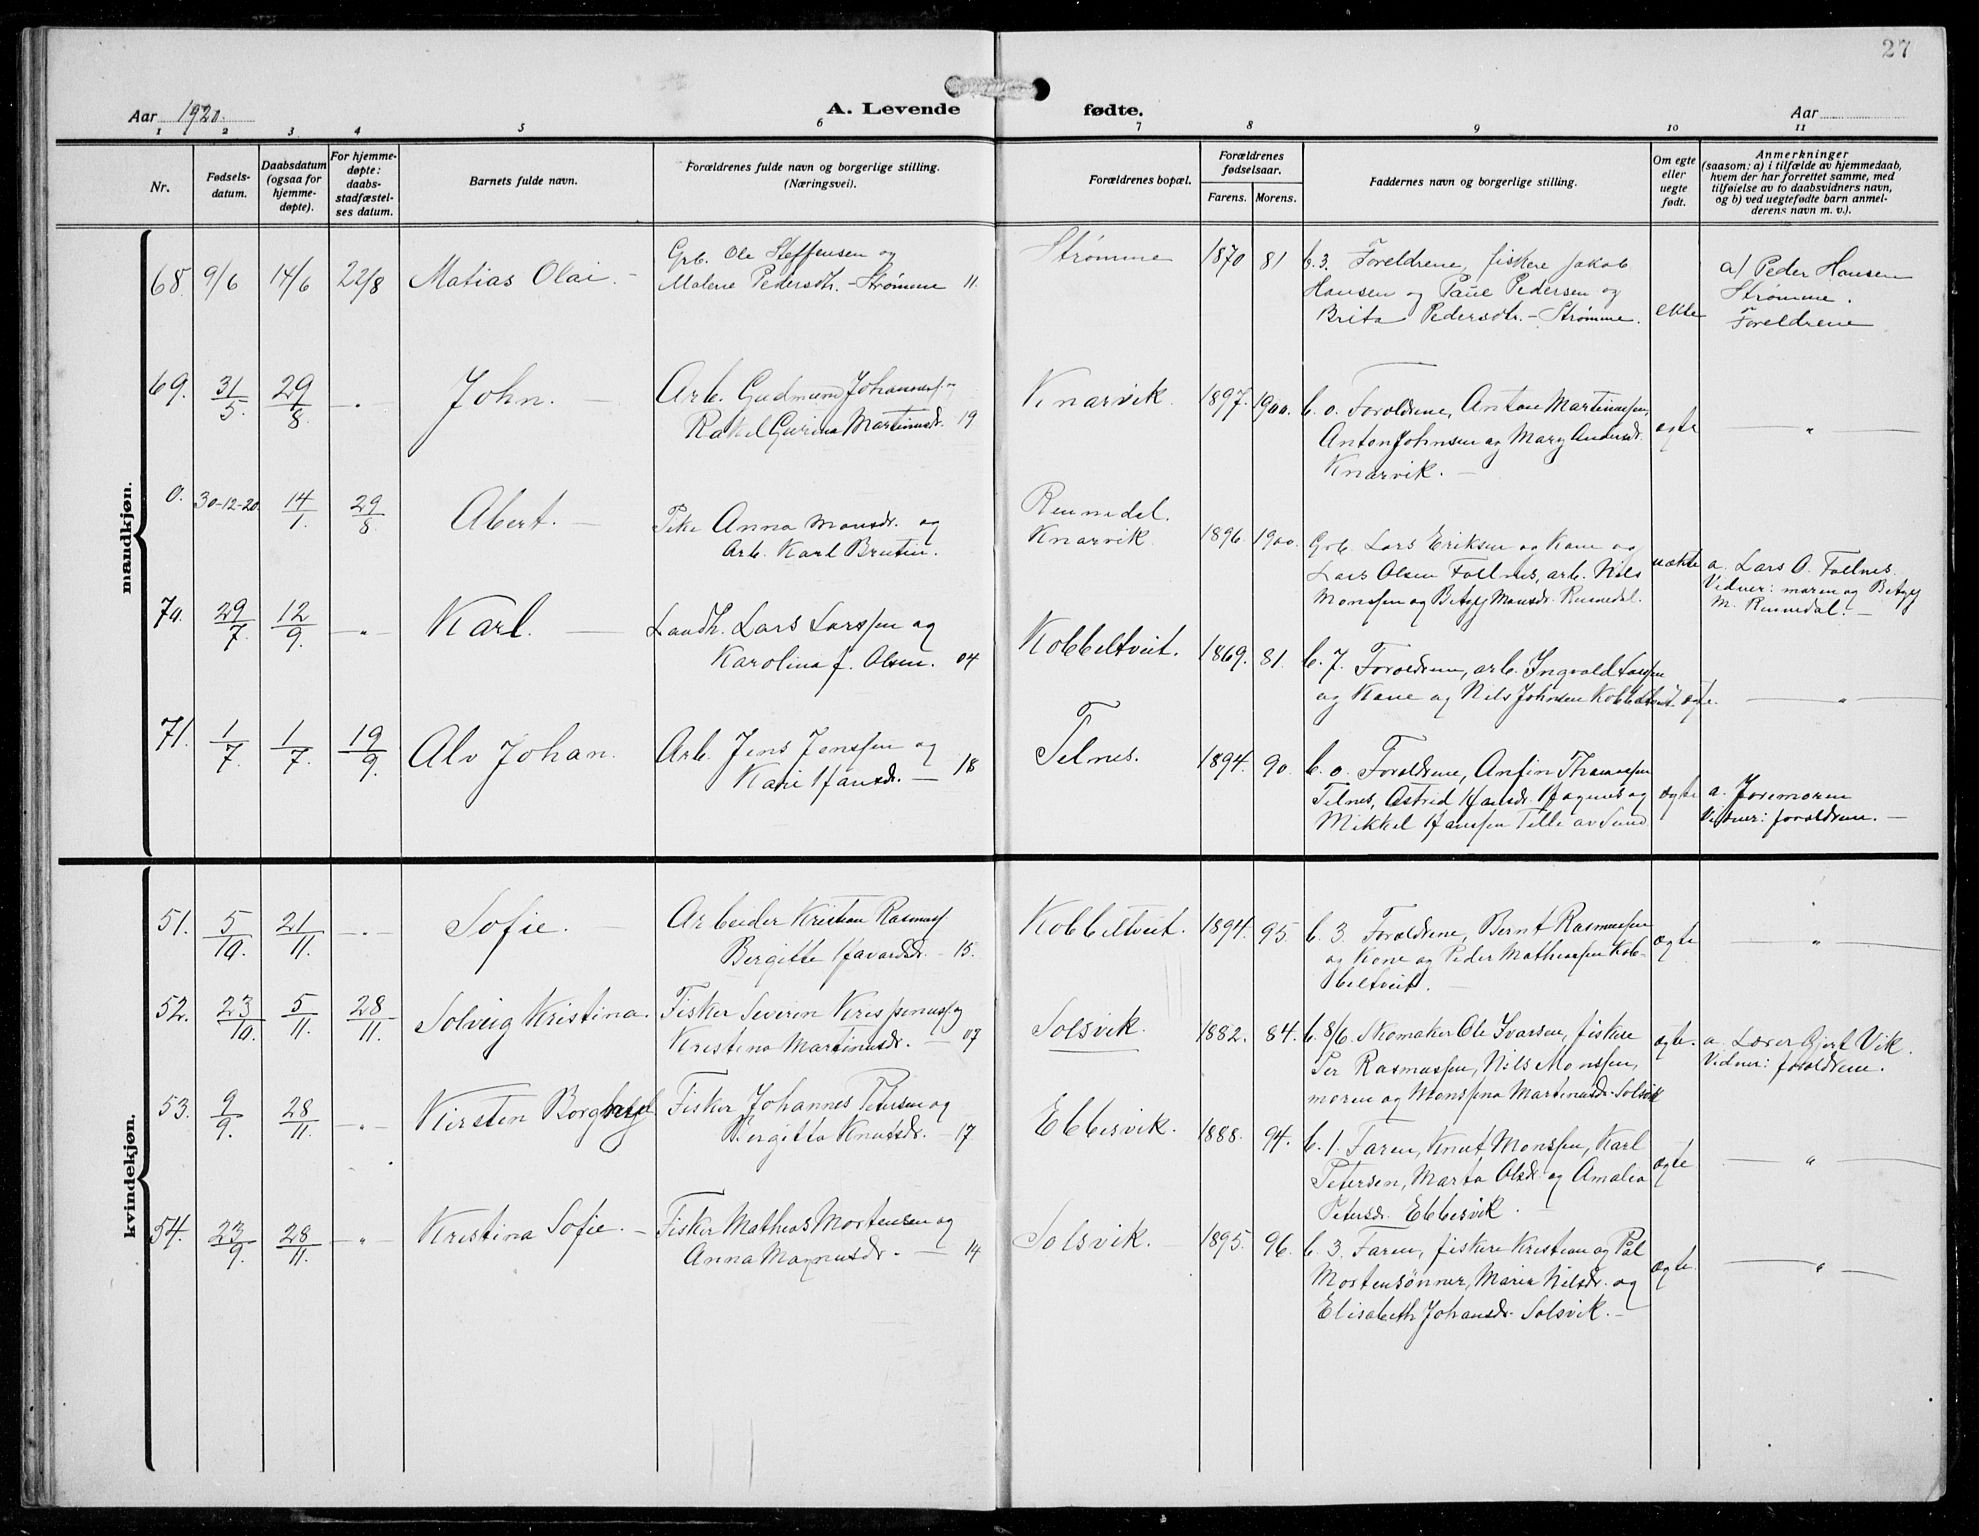 27
Aar 1920.
A. Levende fødte.
Aar
1 2 3 4 5 6 7 8 9 10 11
Nr.
Fødsels-
datum.
Daabsdatum
(ogsaa for
hjemme-
døpte).
For hjemme-
døpte:
daabs-
stadfæstel-
ses datum.
Barnets fulde navn.
Forældrenes fulde navn og borgerlige stilling.
(Næringsvei).
Forældrenes bopæl.
Forældrenes
fødselsaar.
Farens. Morens.
Faddernes navn og borgerlige stilling.
Om egte
eller
uegte
født.
Anmerkninger
(saasom: a) i tilfælde av hjemmedaab,
hvem der har forrettet samme, med
tilføielse av to daabsvidners navn,
og b) ved uegtefødte barn anmel-
derens navn m. v.).
mandkjøn.
68. 9/6 14/6 22/8 Matias Olai -
Grb. Ole Steffensen og
Malene Pedersdtr. - Strømme 11.
Strømme 1870 81
b. 3. Foreldrene, fiskere Jakob
Hansen og Paul Pedersen og
Brita Pedersdtr. - Strømme.
ekte
a) Peder Hansen
Strømme.
Foreldrene
69. 31/5. 29/8. - " - John. -
Arb. Gudmund Johannes
Rakel Gurina Martinusdr. 19
Knarvik. 1897. 1900.
b. o. Foroldrene, Anton Martinussen,
Anton Johnsen og Mary Andersdr.
Knarvik. -
ægte
- " -
0. 30-12-20 14/1. 29/8. Abert. -
Pike Anna Monsdr. og
Arb. Karl Brutin.
Rennedal.
Knarvik. 1896. 1900.
Grb. Lars Eriksen og Kone og
Lars Olsen Follnes, arb. Nils
Monssen og Betzy Monsdr. Rennedal.
uækte
a. Lars O. Follnes.
Vidner: moren og Betzy
M. Rennedal. -
70. 29/7. 12/9. - " - Karl. -
Landh. Lars Larssen og
Karolina J. Olsen. 04
Kobbeltveit. 1869. 81.
b. 7. Foroldrene, arb. Ingvald Larssen
og Kone og Nils Johnsen Kobbeltveit.
ægte.
- " -
71. 1/7. 1/7. 19/9. Alv Johan.
Arb. Jens Jenssen og
Kari Hansdr. - 18
Telnes. 1894. 90.
b. o. Foroldrene, Anfin Thomassen
Telnes, Astrid Hansdr. Hagenes og
Mikkel Hanssen Telle av Sund
ægte
a. Jormoren
Vidner: foroldrene. -
kvindekjøn.
51. 5/10. 21/11. - " - Sofie. -
Arbeider Kristian Rasmuss
Bergitte Havardsdr. - 15.
Kobbeltveit. 1894. 95.
b. 3. Foroldrene, Bernt Rasmussen
og Kone og Peder Mathiassen Kob-
beltveit. -
ægte
- " -
52. 23/10. 5/11. 28/11. Solveig Kristina.
Fisker Severin Krispinuss og
Kristina Martinusdr. - 07
Solsvik. 1882. 84.
b. 8/6. Skomaker Ole Ivarsen, fiskere
Per Rasmussen, Nils Monssen,
moren og Monssina Martinusdr. Solsvik
ægte.
a. Lærer Gjert Vik.
Vidner: foroldrene.
53. 9/9. 28/11. - " - Kirsten Borghild
Fisker Johannes Petersen og
Bergitta Knutsdr. - 17
Ebbesvik. 1888. 94.
b. 1. Faren, Knut Monssen, Karl
Petersen, Marta Olsdr og Amalia
Petersdr. Ebbesvik. -
ægte
- " -
54. 23/9. 28/11. - " - Kristina Sofie. -
Fisker Mathias Mortensen og
Anna Magnusdr. - 14
Solsvik. 1895. 96.
b. 3. Faren, fiskere Kristian og Pål
Mortensønner, Marie Nilsdr. og
Elisabeth Johansdr. Solsvik. -
ægte.
- " -